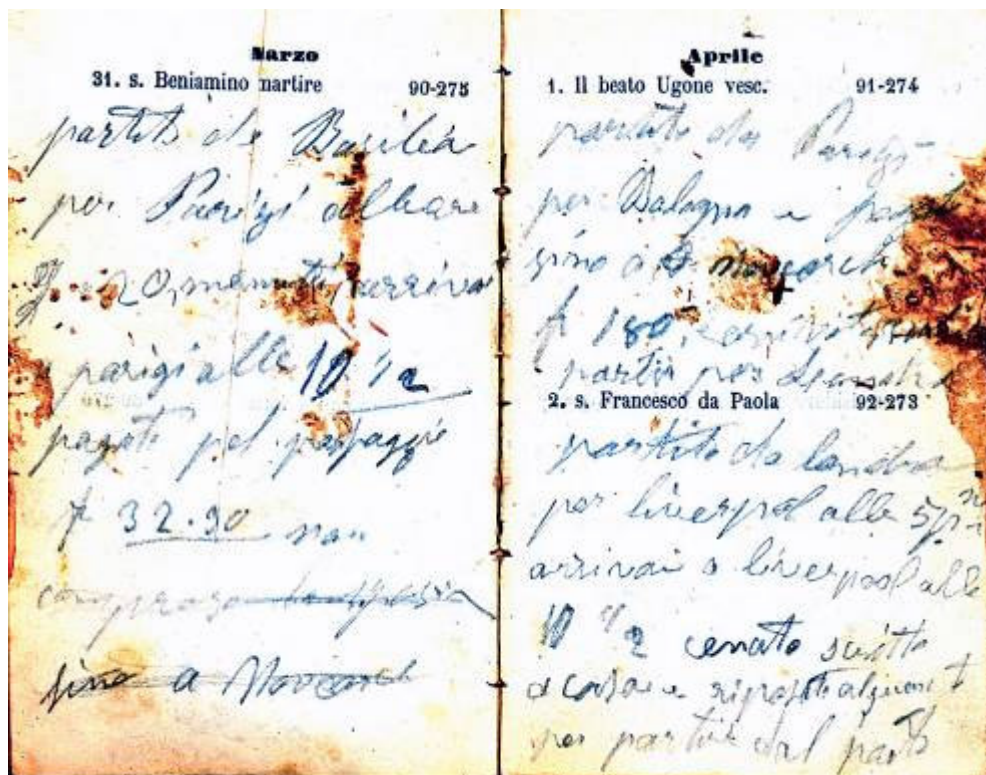 Marzo
31. s. Beniamino martire 90-275
partito da Basilea
per Parigi alle ore
9 e 20 menuti, arrivai
a parigi alle 10 1/2
pagato pel passaggio
f 32.90 non
compreso
fino a Novarch
Aprile
1. Il beato Ugone vesc. 91-274
partito da Parigi
per Balogna e pagato
sino a novearch
f 180,
partir per
2. s. Francesco da Paola 92-273
partito da londra
per liverpol alle 5
arrivai a liverpool alle
10 1/2 cenato scritto
a casa e riposato alquant
per partire dal porto